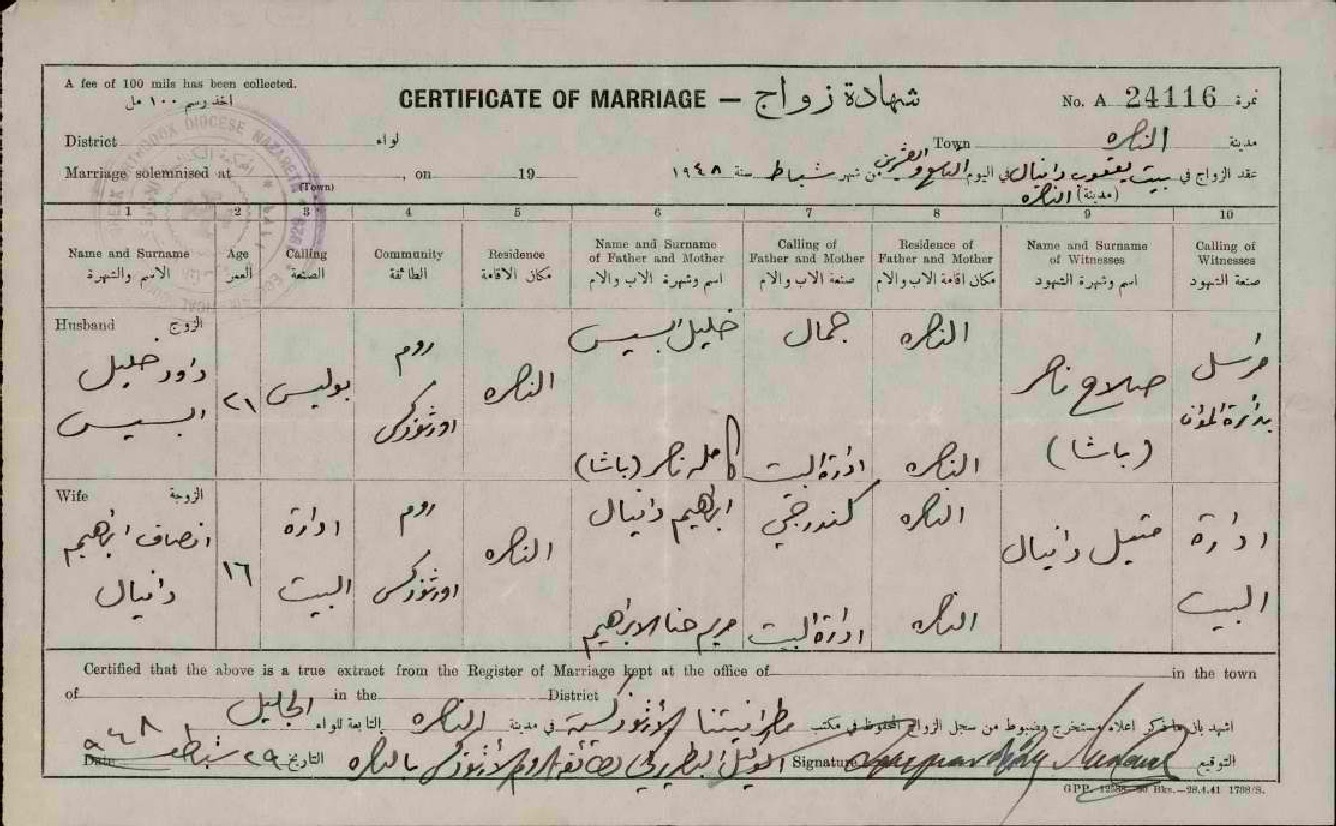 A fee of 100 mils has been collected.
اخذ رسم ١٠٠ مل
CERTIFICATE OF MARRIAGE — شهادة زواج
No. A 24116 نمرة
District لواء Town الناصره مدينة
Marriage solemnised at , on 19
(Town)
عقد الزواج في بيت يعقوب دانيال في اليوم التاسع والعشرين من شهر شباط سنة ١٩٤٨
(مدينة) الناصره
1 2 3 4 5 6 7 8 9 10
Name and Surname
الاسم والشهرة
Age
العمر
Calling
الصنعة
Community
الطائفة
Residence
مكان الاقامة
Name and Surname
of Father and Mother
اسم وشهرة الاب والام
Calling of
Father and Mother
صنعة الاب والام
Residence of
Father and Mother
مكان اقامة الاب والام
Name and Surname
of Witnesses
اسم وشهرة الشهود
Calling of
Witnesses
صنعة الشهود
Husband الزوج
داود خليل
البسيس
٢١
بوليس
روم
اورثوذكس
الناصره
خليل البسيس
كامله ناصر (باشا)
جمال
ادارة البيت
الناصره
الناصره
صلاح ناصر
(باشا)
مراسل
بدائرة
Wife الزوجة
انصاف ابراهيم
دانيال
١٦
ادارة
البيت
روم
اورثوذكس
الناصره
ابراهيم دانيال
مريم حنا الابراهيم
كندرجي
ادارة البيت
الناصره
الناصره
دانيال
ادارة
البيت
Certified that the above is a true extract from the Register of Marriage kept at the office of in the town
of in the District
اشهد بان ما ذكر اعلاه مستخرج ومضبوط من سجل الزواج المحفوظ في مكتب مطرانيتنا الارثوذكسية في مدينة الناصره التابعة للواء الجليل
Date ٢٩ شباط ٩٤٨ التاريخ
الوكيل البطريركي لطائفة الروم الارثوذكس بالناصره
Signature التوقيع
GPP. 12535—30 Bks.—28.4.41 1768/S.